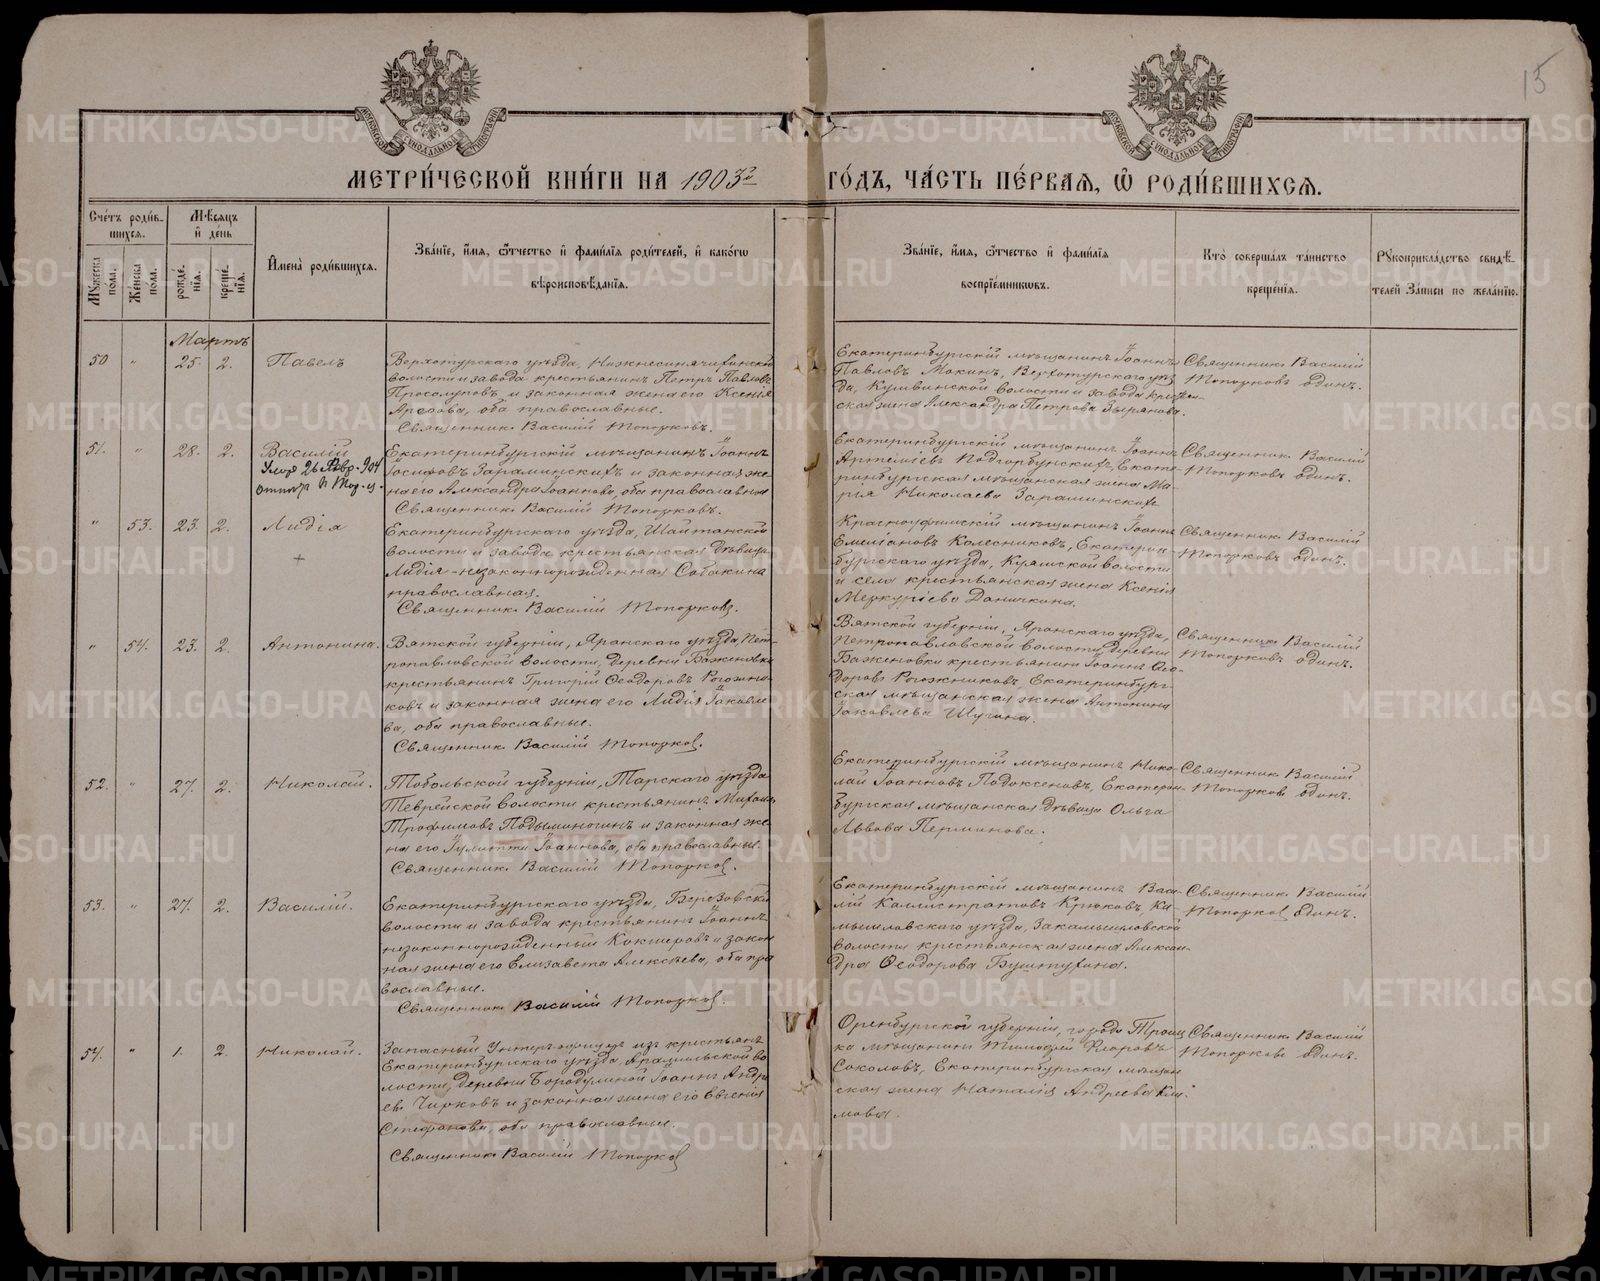 15
МЕТРИ́ЧЕСКОЙ КНИ́ГИ НА 1903й ГО́ДЪ, ЧА́СТЬ ПЕ́РВАЯ, Ѿ РОДИ́ВШИХСЯ.
Сче́тъ роди́в-
шихся.
Мѣ́сяцъ
и де́нь
Мꙋ́жеска
по́ла.
Же́нска
по́ла.
рожде́-
нія.
креще́-
нія.
Имена̀ роди́вшихся.
Зва́ніе, и́мя, ѻ́тчество и фами́лія роди́телей, и како́гѡ
вѣроисповѣ́данія.
Зва́ніе, и́мя, ѻ́тчество и фами́лія
воспріе́мникѡвъ.
Кто̀ соверша́лъ та́инство
креще́нія.
Рꙋкоприкла́дство свидѣ́-
телей за́писи по жела́нію.
Мартъ
50 " 25. 2. Павелъ
Верхотурскаго уѣзда, Нижнесинячихинской
волости и завода крестьянинъ Петръ Павловъ
и законная жена его Ксенія
оба православные.
Священникъ Василій Топорковъ.
Екатеринбургскій мѣщанинъ Іоаннъ
Павловъ Мокинъ, Верхотурскаго уѣз-
да, Кушвинской волости и завода кресть-
ская жена Александра Петрова Зырянова.
Священникъ Василій
Топорковъ одинъ.
51. " 28. 2. Василій
Умер 26 Февр. 904
Екатеринбургскій мѣщанинъ Іоаннъ
Іосифовъ Зараминскихъ и законная же-
на его Александра Іоаннова, оба православные
Священникъ Василій Топорковъ.
Екатеринбургскій мѣщанинъ Іоаннъ
Артеміевъ Подгорбунскихъ, Екате-
ринбургская мѣщанская жена Ма-
рія Николаева Зараминскихъ.
Священникъ Василій
Топорковъ одинъ.
" 53. 23. 2. Лидія
+
Екатеринбургскаго уѣзда, Шайтанской
волости и завода крестьянская дѣвица
Лидія-незаконнорожденная Собакина
православная.
Священникъ Василій Топорковъ.
Красноуфимскій мѣщанинъ Іоаннъ
Емеліановъ Колесниковъ, Екатерин-
бургскаго уѣзда, волости
и села крестьянская жена Ксенія
Меркуріева Даничкина.
Священникъ Василій
Топорковъ одинъ.
" 54. 23. 2. Антонина.
Вятской губерніи, Яранскаго уѣзда, Пет-
ропавловской волости, деревни Баженовки
крестьянинъ Григорій Ѳеодоровъ Рогожни-
ковъ и законная жена его Лидія Іаковле-
ва, оба православные.
Священникъ Василій Топорковъ.
Вятской губерніи, Яранскаго уѣзда,
Петропавловской волости, деревни
Баженовки крестьянинъ Іоаннъ Ѳео-
доровъ Рогожниковъ Екатеринбург-
ская мѣщанская жена Антонина
Іаковлева Шугина.
Священникъ Василій
Топорковъ одинъ.
52. " 27. 2. Николай.
Тобольской губерніи, Тарскаго уѣзда
Тевризской волости крестьянинъ Михаилъ
Трофимовъ Подымоногинъ и законная же-
на его Іулитта Іоаннова, оба православные.
Священникъ Василій Топорковъ.
Екатеринбургскій мѣщанинъ Нико-
лай Іоанновъ Подоксеновъ, Екатерин-
бургская мѣщанская дѣвица Ольга
Львова Перминова.
Священникъ Василій
Топорковъ одинъ.
53. " 27. 2. Василій.
Екатеринбургскаго уѣзда, Березовской
волости и завода крестьянинъ Іоаннъ
незаконнорожденный Кокшаровъ и закон-
ная жена его Елизавета Алексѣева, оба пра-
вославные.
Священникъ Василій Топорковъ.
Екатеринбургскій мѣщанинъ Васи-
лій Каллистратовъ Крюковъ, Ка-
мышловскаго уѣзда, Закамышловской
волости крестьянская жена Алексан-
дра Ѳеодорова
Священникъ Василій
Топорковъ одинъ.
54. " 1. 2. Николай.
Запасный Унтеръ-офицеръ изъ крестьянъ
Екатеринбургскаго уѣзда, Арамильской во-
лости, деревни Бородулиной Іоаннъ Андре-
евъ Чирковъ и законная жена его Евгенія
Стефанова, оба православные.
Священникъ Василій Топорковъ
Оренбургской губерніи, города Троиц-
ка мѣщанинъ Тимофей Ѳлоровъ
Соколовъ, Екатеринбургская мѣщан-
ская жена Наталія Андреева Кли-
мова.
Священникъ Василій
Топорковъ одинъ.
METRIKI.GASO-URAL.RU